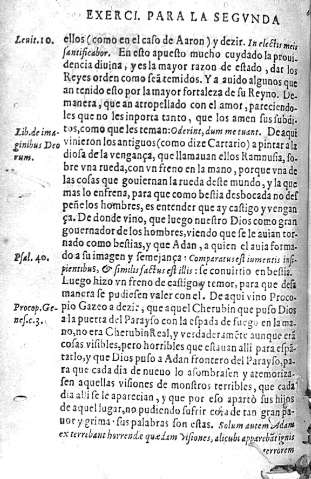 EXERCI. PARA LA SEGVNDA
Leuit.10. ellos (como en el caso de Aaron) y dezir. In electis meis
santificabor. En esto apuesto mucho cuydado la proui
dencia diuina, y es la mayor razon de estado, dar los
Reyes orden como seã temidos. Y a auido algunos que
an tenido esto por la mayor fortaleza de su Reyno. De-
manera, que an atropellado con el amor, pareciendo-
les que no les inporta tanto, que los amen sus subdi-
Lib. de ima- tos, como que les teman: Oderint, dum metuant. De aqui
ginibus Deo vinieron los antiguos (como dize Cartario) a pintar a la
rum. diosa de la vengança, que llamauan ellos Ramnusia, so-
bre vna rueda, con vn freno en la mano, porque vna de
las cosas que gouiernan la rueda deste mundo, y la que
mas lo enfrena, para que como bestia desbocada no des
peñe los hombres, es entender que ay castigo y vengan
ça. De donde vino, que luego nuestro Dios como gran
gouernador de los hombres, viendo que se le auian tor-
nado como bestias, y que Adan, a quien el auia forma-
Psal. 40. do a su imagen y semejança: Comparatus est iumentis insi-
pientibus, & similis factus est illis: se conuirtio en bestia.
Luego hizo vn freno de castigo y temor, para que desa
manera se pudiesen valer con el. De aqui vino Proco-
Procop. Ge- pio Gazeo a dezir, que aquel Cherubin que puso Dios
nes. c. 3. a la puerta del Parayso con la espada de fuego en la ma-
no, no era Cherubin Real, y verdaderamẽte aunque erã
cosas visibles, pero horribles que estauan alli para espã-
tarlo, y que Dios puso a Adan frontero del Parayso, pa-
ra que cada dia de nueuo lo asombrasen y atemoriza-
sen aquellas visiones de monstros terribles, que cada
dia alli se le aparecian, y que por eso apartò sus hijos
de aquel lugar, no pudiendo sufrir cosa de tan gran pa-
uor y grima: sus palabras son estas. Solum autem Adam
exterrebant horrendæ quædam visiones, alicubi apparebat ignis
terrorem